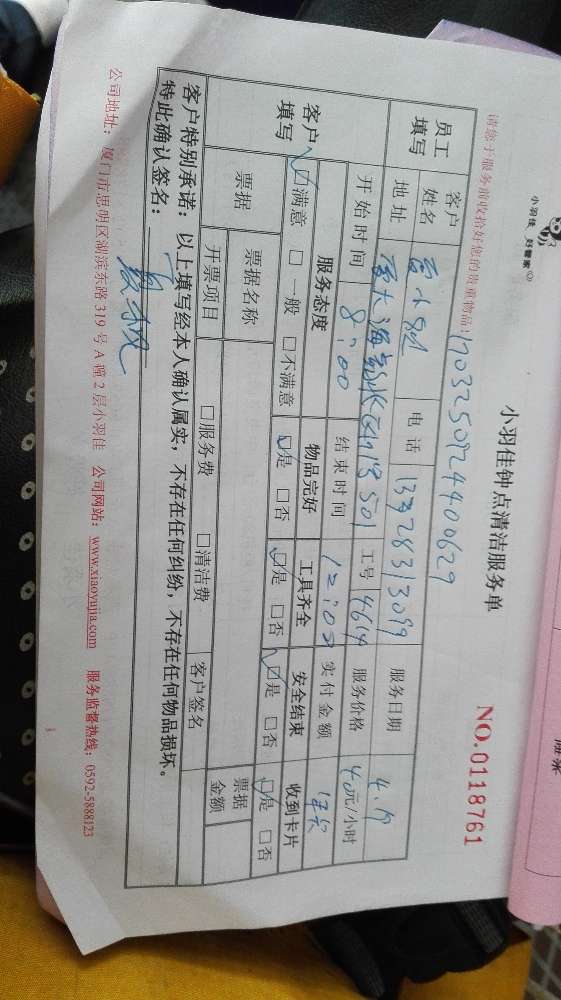 小羽佳 好管家
小羽佳钟点清洁服务单
NO.0118761
请您于服务前收拾好您的贵重物品!
1703250924400629
员工填写 客户姓名 电话 服务日期
地址 工号 4614 服务价格 40元/小时
客户填写 开始时间 8:00 结束时间 12:00 实付金额
服务态度 物品完好 工具齐全 安全结束 收到卡片
☑满意 □一般 □不满意 ☑是 □否 ☑是 □否 ☑是 □否 ☑是 □否
票据 票据名称 客户签名 票据金额
开票项目 □服务费 □清洁费
客户特别承诺:以上填写经本人确认属实,不存在任何纠纷,不存在任何物品损坏。
特此确认签名:
公司地址:厦门市思明区湖滨东路 319 号 A 幢 2 层小羽佳 公司网站:www.xiaoyujia.com 服务监督热线:0592-5888123